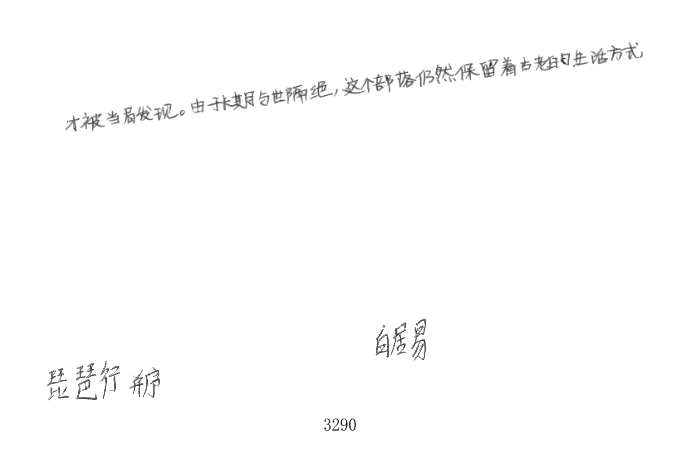 才被当局发现。由于长期与世隔绝，这个部落仍然保留着古老的生活方式
白居易
琵琶行 并序
3290